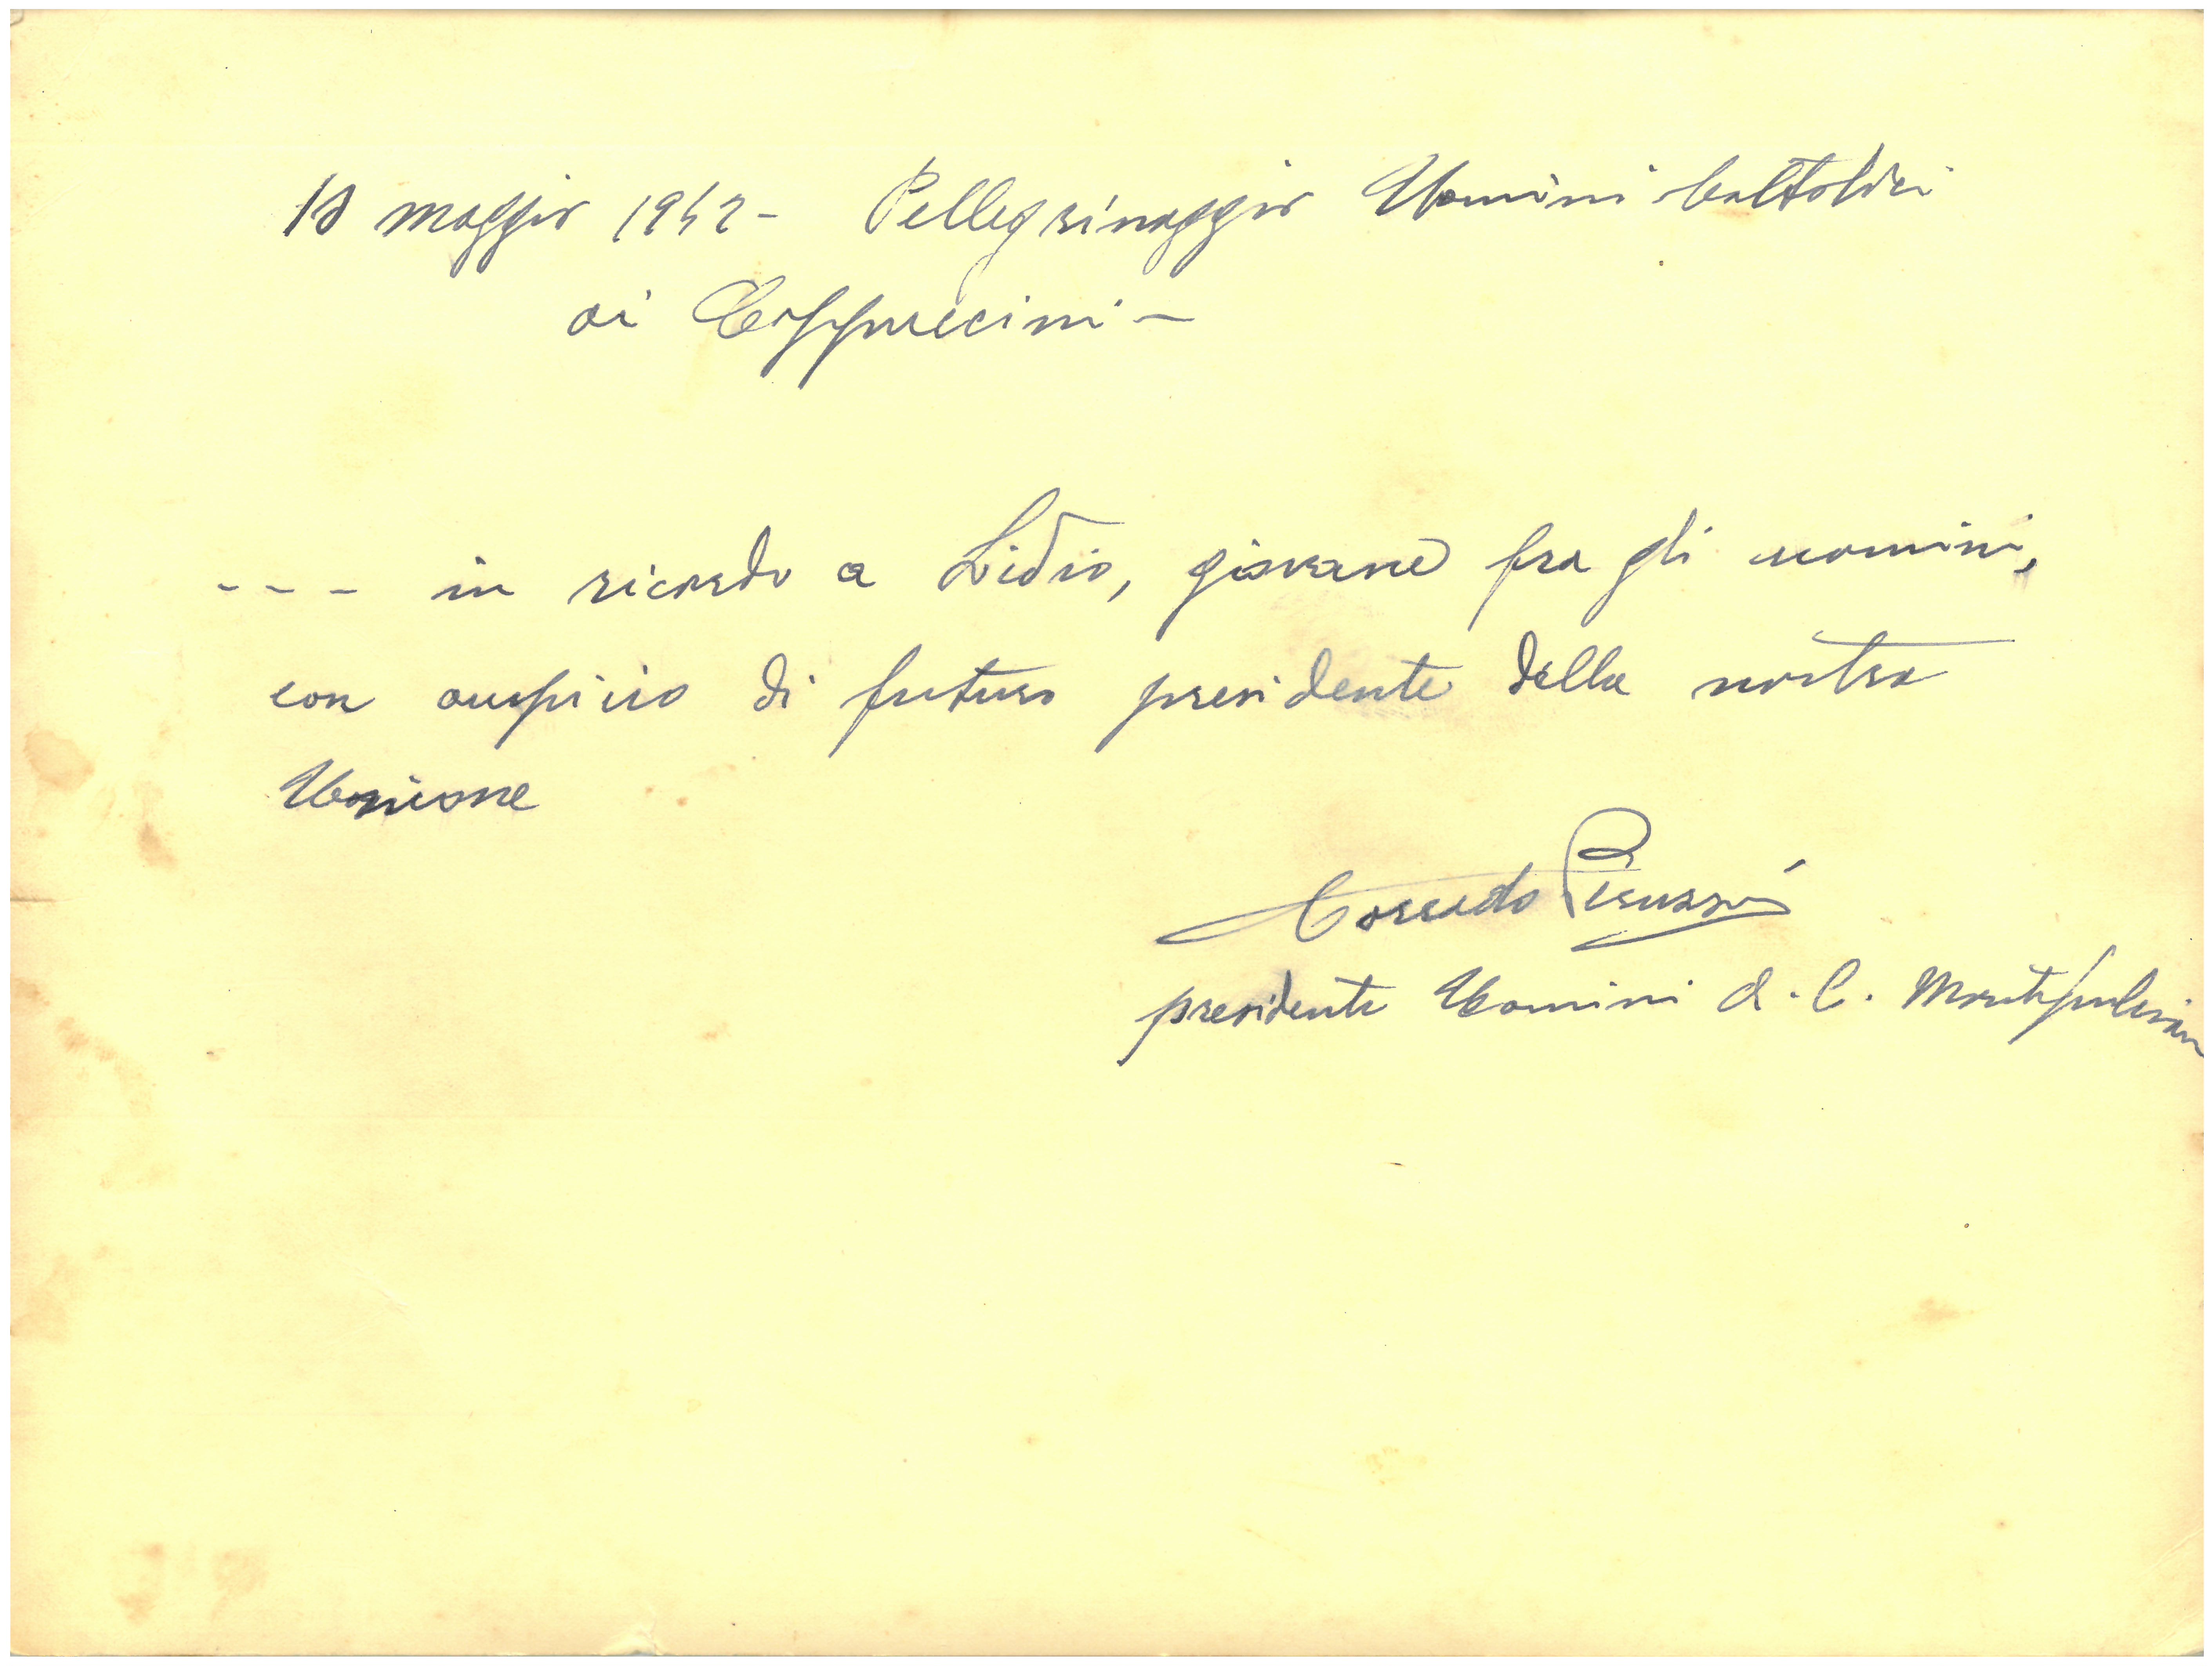 10 maggio 1942 - Pellegrinaggio Uomini Cattolici
ai Cappuccini -
- - - in ricordo a Lidio, giovane fra gli uomini,
con auspicio di futuro presidente della nostra
Unione
Corrado Peruzzi
presidente Uomini A. C. Montepulciano